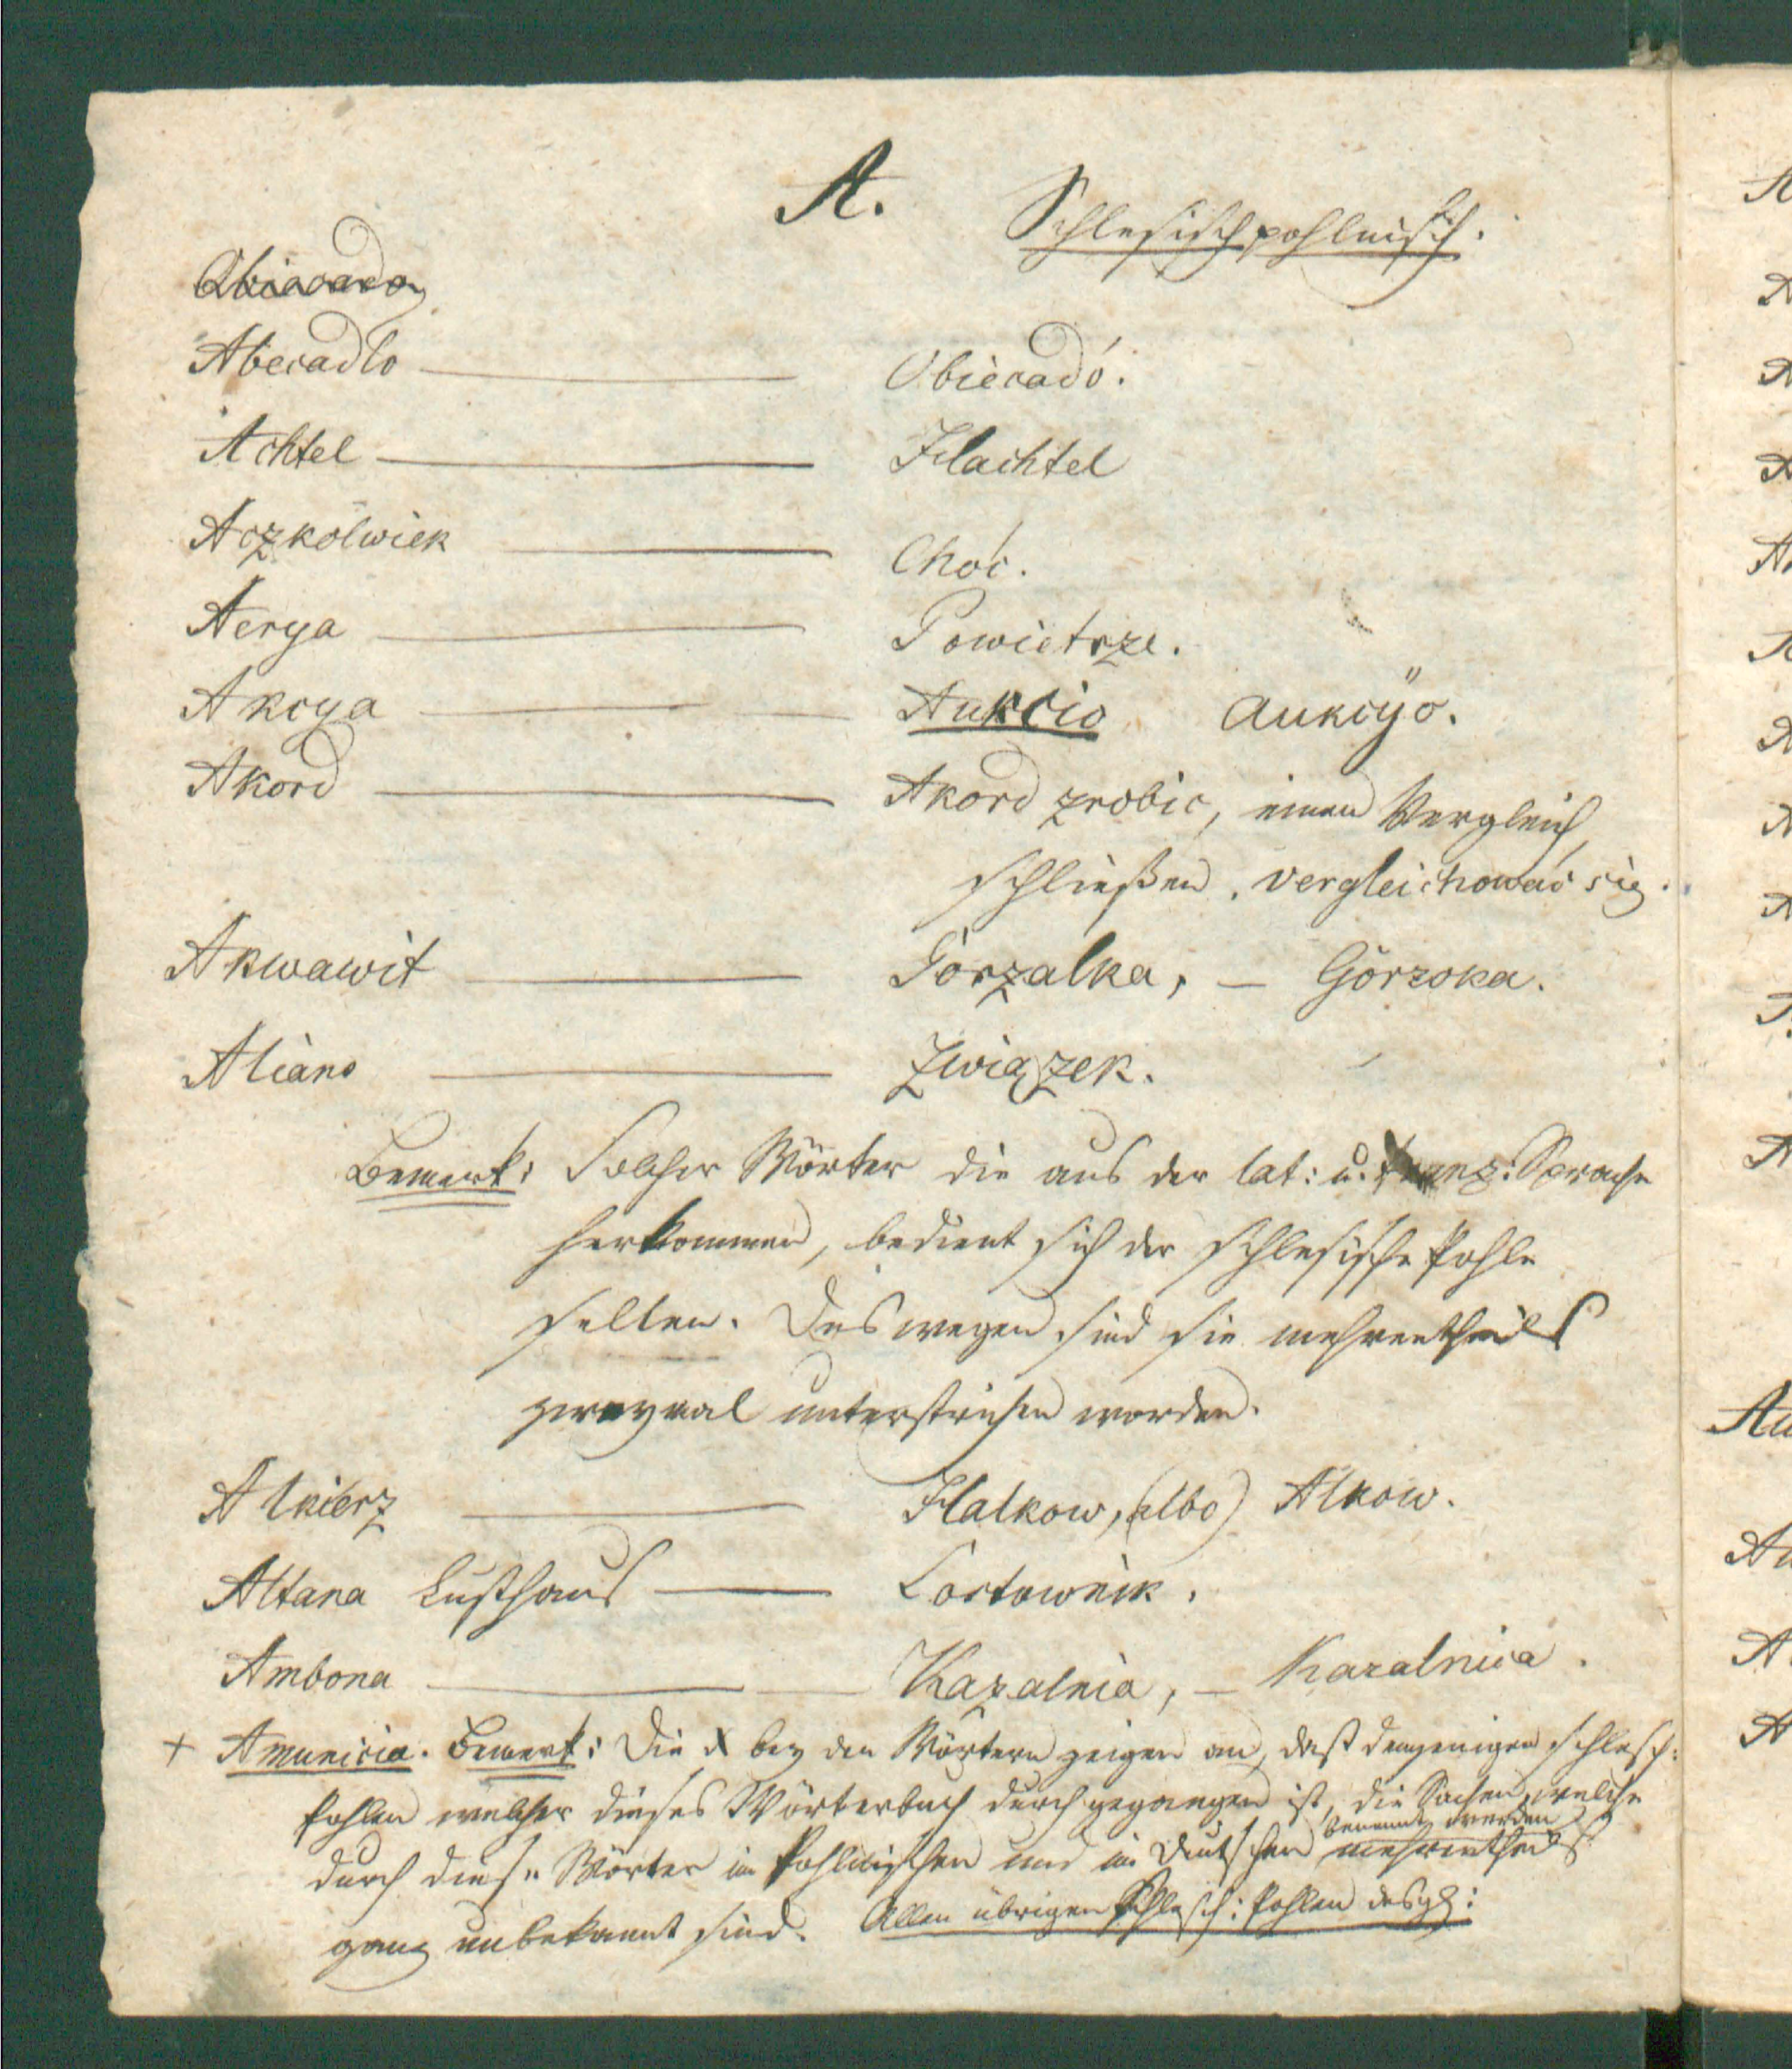 A.
Schlesischpohlnisch.
Abecadło — Obiecadó.
Achtel — Hachtel
Aczkolwiek — Choć.
Aerya — Powietrze.
Akcya — Aukcio aukcÿo.
Akord — Akord zrobic, einen Vergleich
schließen, vergleichować się.
Akwawit — Gorzalka, — Gorzoka.
Alians — Związek.
Bemerk: Solcher Wörter die aus der lat: u. franz: Sprache
herkommen, bedient sich der schlesische Pohle
selten. Deswegen sind sie mehrentheils
zweymal unterstrichen worden.
Alkierz — Halkow, (albo) Alkow.
Altana Lusthaus — Lostownik.
Ambona — Kazalnia, — Kazalnica.
+ Amunicia. Bemerk: Die x bey den Wörtern zeigen an, daß demjenigen schlesch:
Pohlen welcher dieses Wörterbuch durchgegangen ist, die Sachen, welche
benennt werden
durch diese Wörter im Pohlnischen und im Deutschen mehrentheils
ganz unbekannt sind. Allen übrigen Schlesch: Pohlen desgl:
A
A
A
A
A
A
A
A
A
A
Au
A
A
A